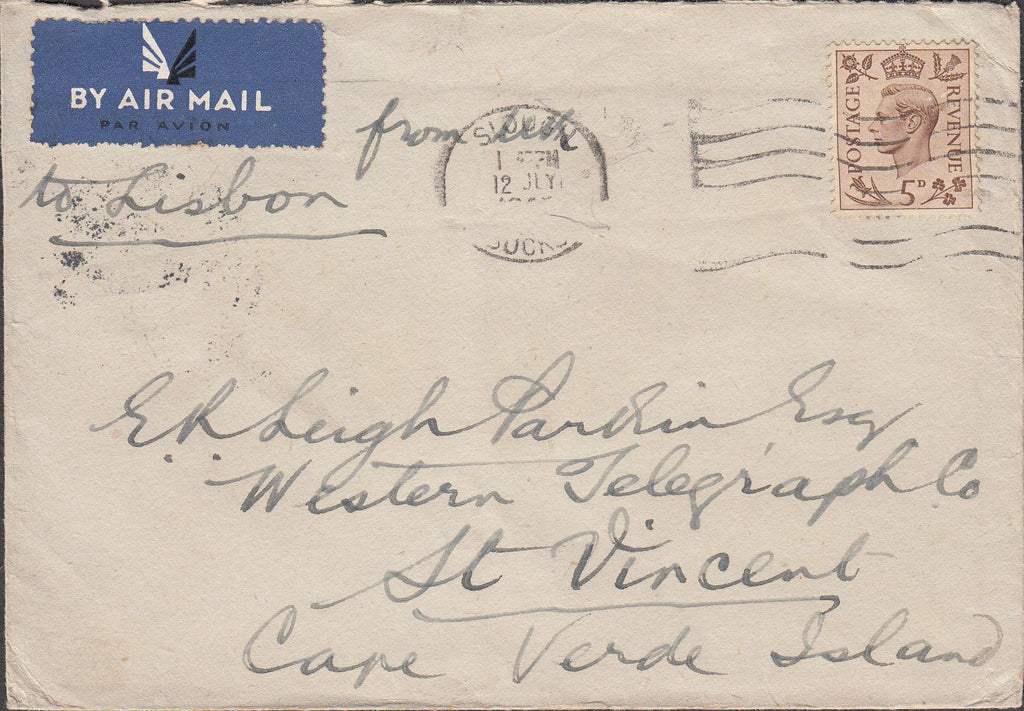 BY AIR MAIL
PAR AVION
from
to Lisbon
SLOUGH
12 JLY
BUCKS
POSTAGE
REVENUE
5D
E R Leigh Parkin Esq
Western Telegraph Co
St Vincent
Cape Verde Island